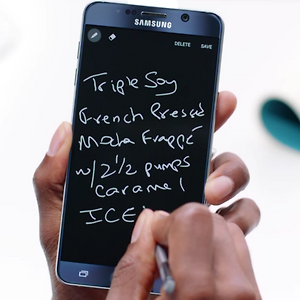 SAMSUNG
DELETE SAVE
Triple Soy
French Pressé
Moca Frappé
w/ 2 1/2 pumps
caramel
ICE